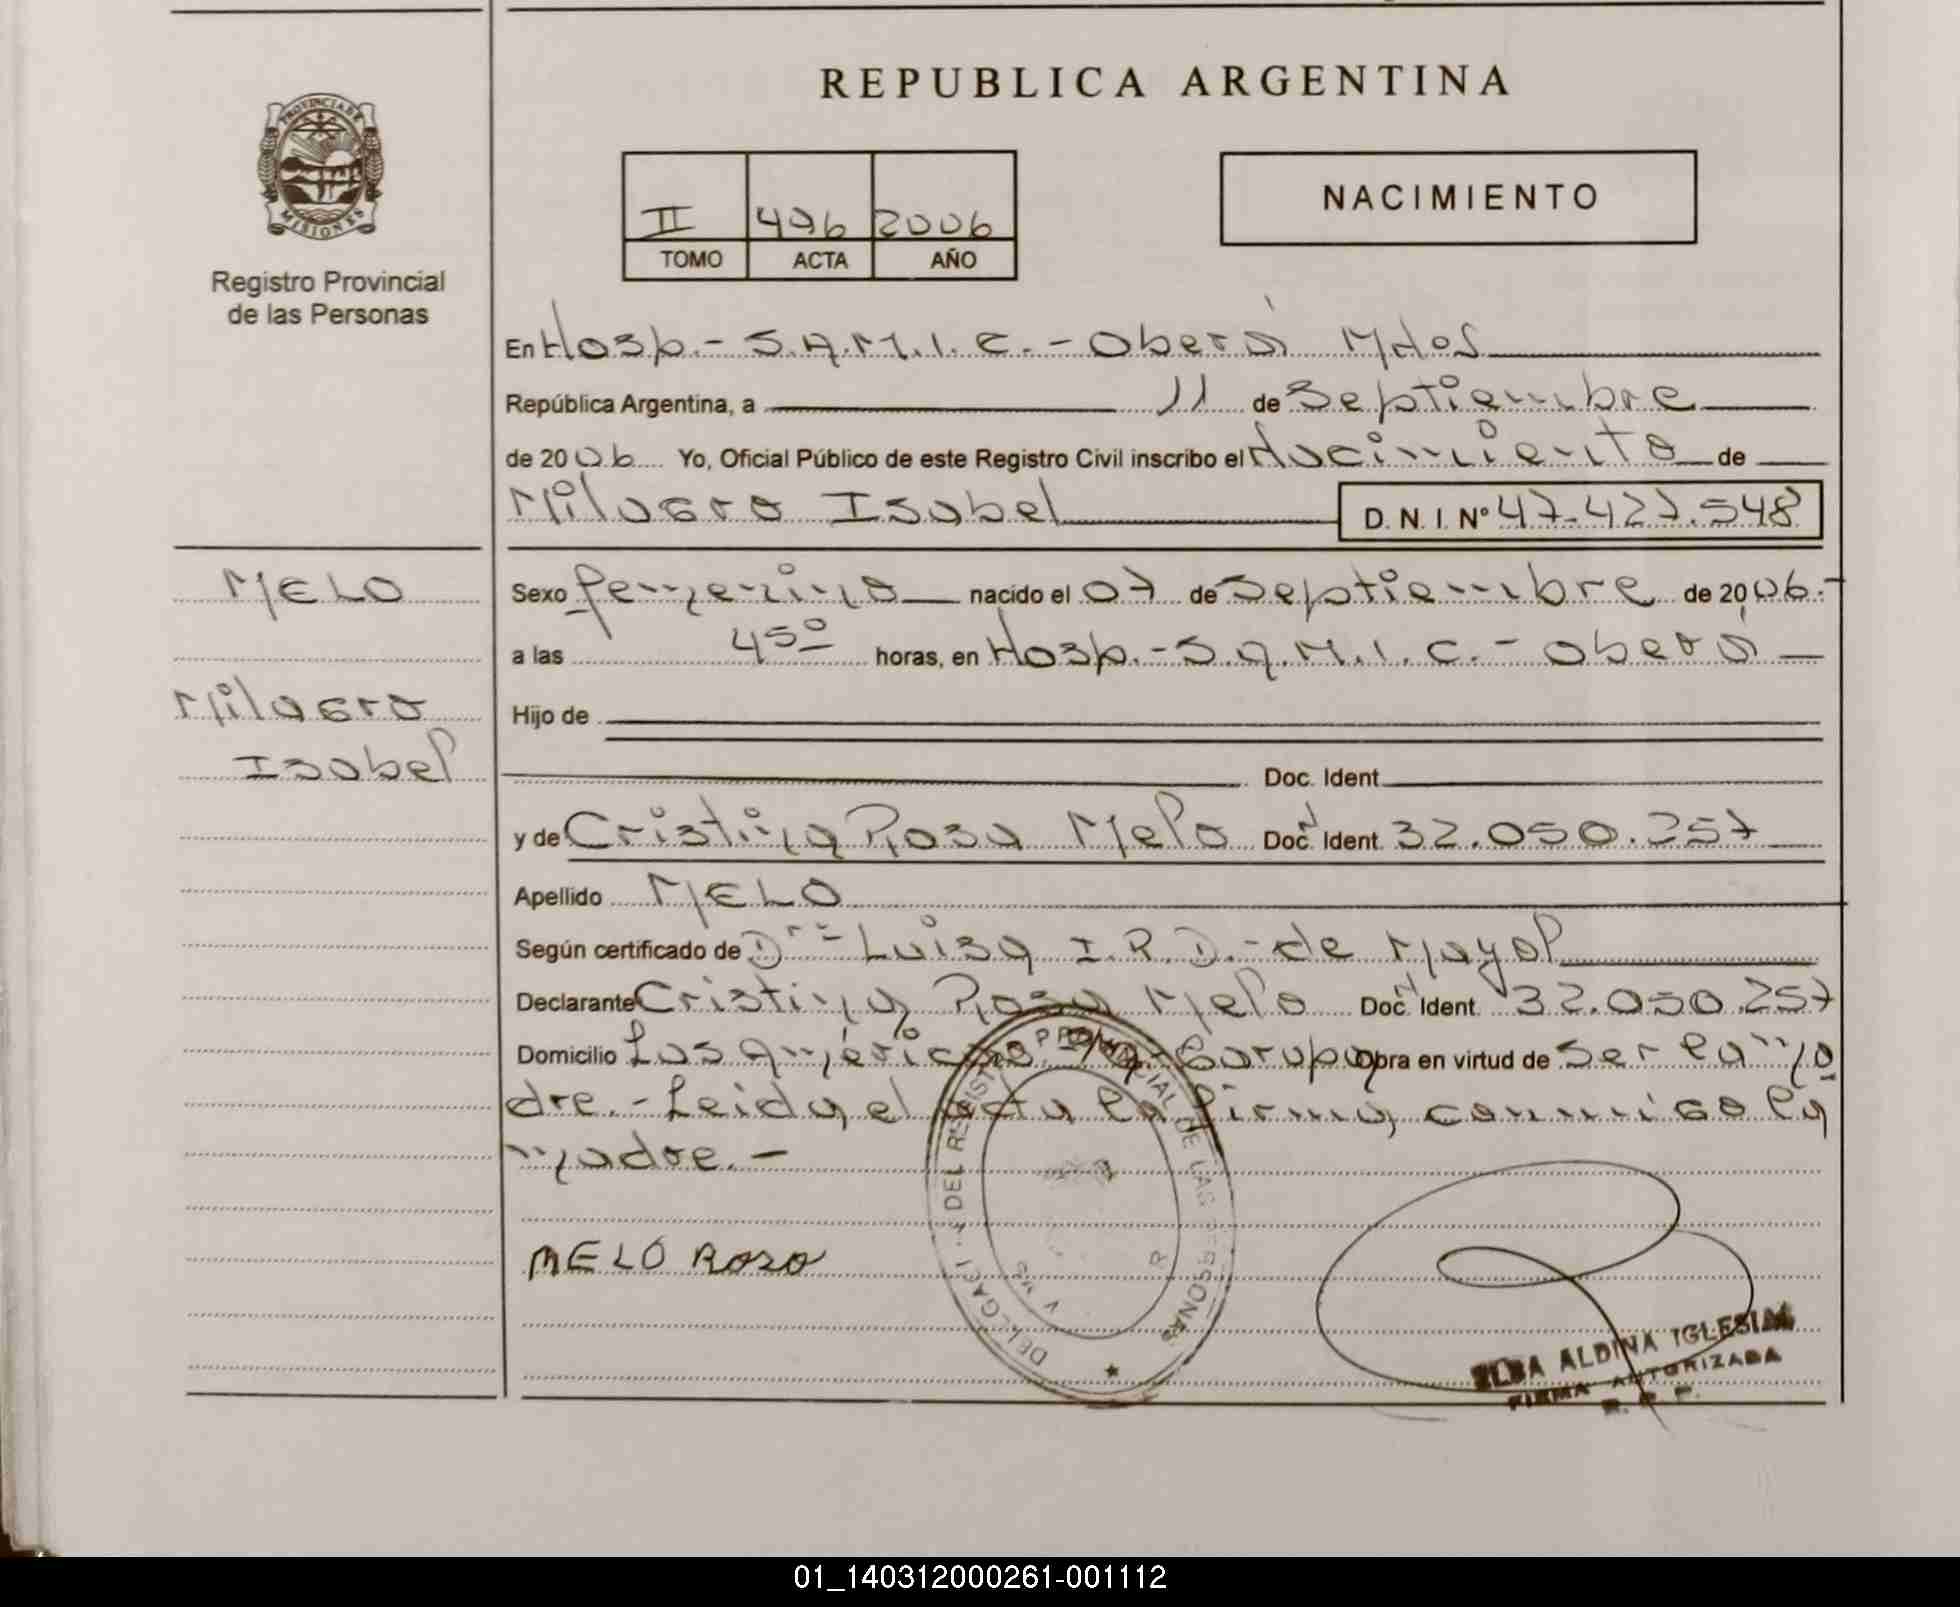 REPUBLICA ARGENTINA
PROVINCIA DE
MISIONES
Registro Provincial
de las Personas
II 496 2006
TOMO ACTA AÑO
NACIMIENTO
En Hosp.- S.A.M.I.C.- Oberá Mnes
República Argentina, a 11 de Septiembre
de 2006 Yo, Oficial Público de este Registro Civil inscribo el Nacimiento de
Milagro Isabel D. N. I. Nº 47.427.548
MELO
Sexo femenino nacido el 07 de Septiembre de 2006.-
a las 4:50 horas, en Hosp.- S.A.M.I.C.- Oberá
Milagro
Isabel
Hijo de
Doc. Ident.
y de Cristina Rosa Melo Doc. Ident. 32.050.257
Apellido MELO
Según certificado de Dra Luisa I.R.D.- de Mayol
Declarante Cristina Rosa Melo Doc. Ident. 32.050.257
Domicilio Las Américas Obra en virtud de ser la ma
dre.- Leida el acta la firma conmigo la
madre.-
MELO Rosa
DEL REGISTRO PROVINCIAL DE LAS PERSONAS
ELBA ALDINA IGLESIAS
FIRMA AUTORIZADA
R. P. P.
01_140312000261-001112